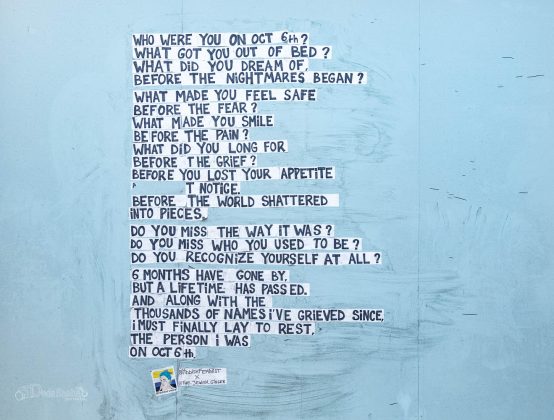 WHO WERE YOU ON OCT 6th?
WHAT GOT YOU OUT OF BED?
WHAT DID YOU DREAM OF,
BEFORE THE NIGHTMARES BEGAN?
WHAT MADE YOU FEEL SAFE
BEFORE THE FEAR?
WHAT MADE YOU SMILE
BEFORE THE PAIN?
WHAT DID YOU LONG FOR
BEFORE THE GRIEF?
BEFORE YOU LOST YOUR APPETITE
T NOTICE.
BEFORE THE WORLD SHATTERED
iNTO PIECES.
DO YOU MISS THE WAY IT WAS?
DO YOU MISS WHO YOU USED TO BE?
DO YOU RECOGNIZE YOURSELF AT ALL?
6 MONTHS HAVE GONE BY,
BUT A LIFETIME HAS PASSED.
AND ALONG WITH THE
THOUSANDS OF NAMES i'VE GRIEVED SINCE,
i MUST FINALLY LAY TO REST,
THE PERSON i WAS
ON OCT 6th.
X